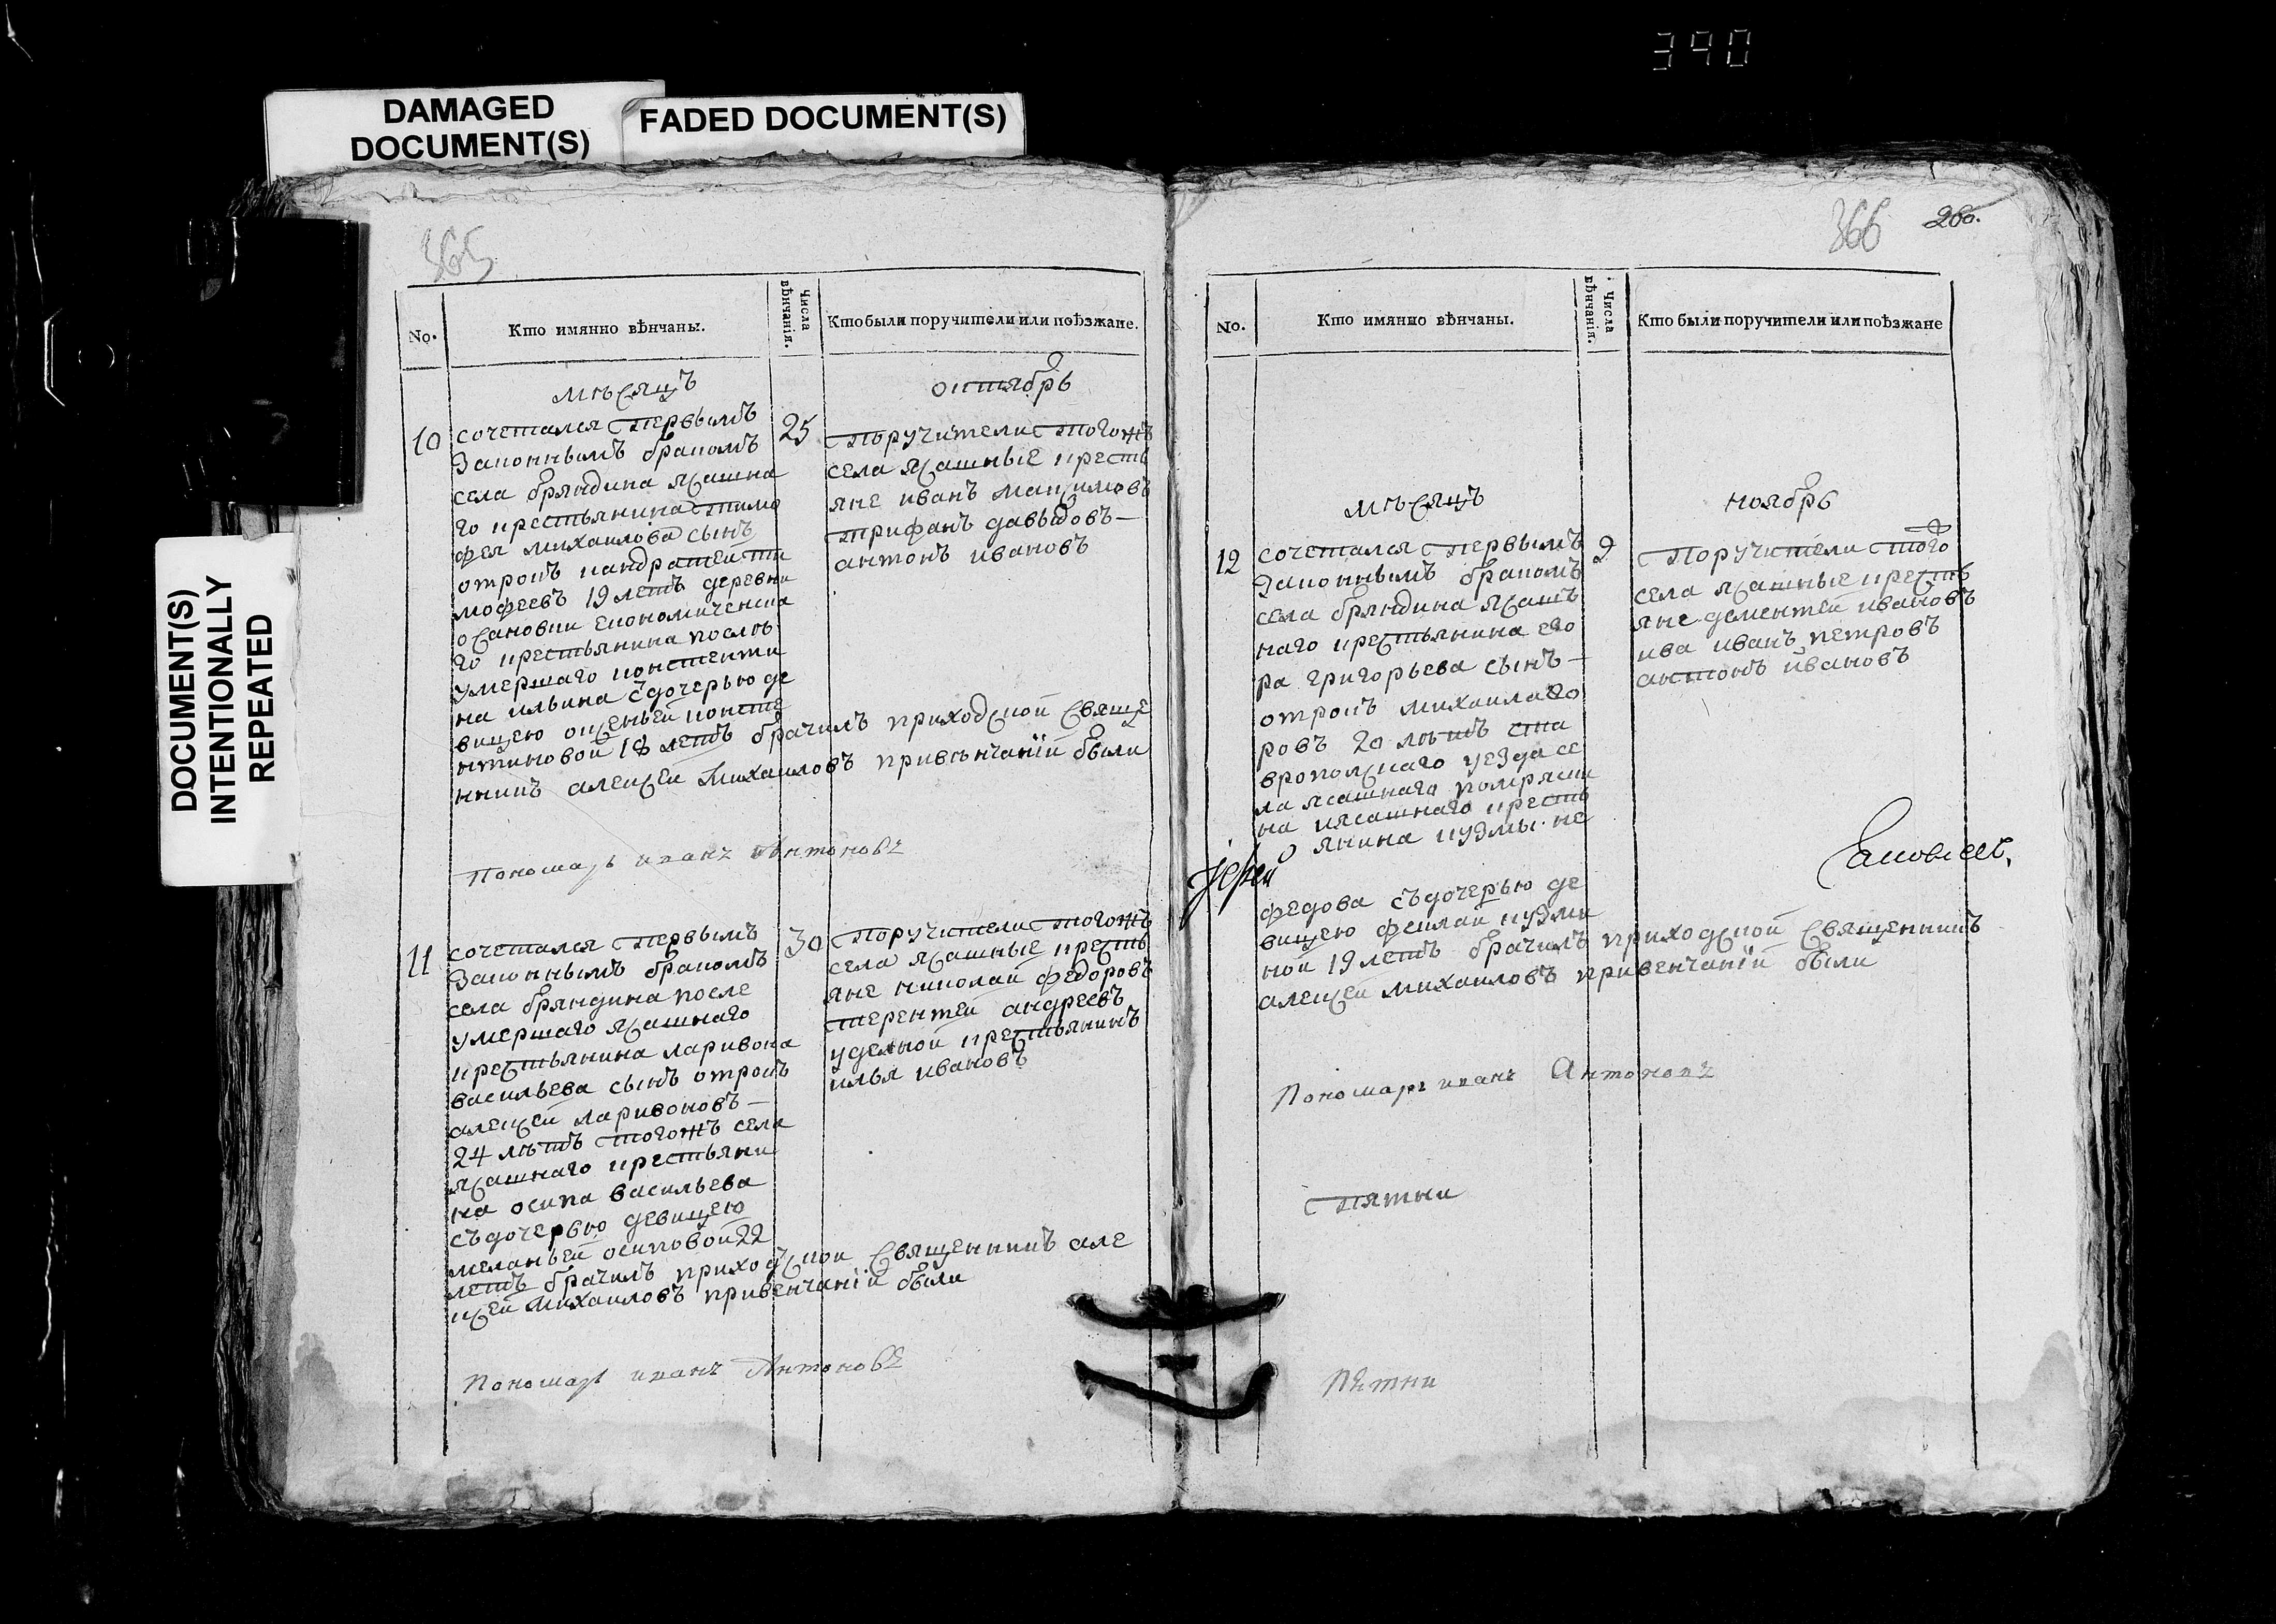 390
DAMAGED
DOCUMENT(S)
FADED DOCUMENT(S)
DOCUMENT(S)
INTENTIONALLY
REPEATED
365
No.
Кто имянно вѣнчаны.
Числа
вѣнчанія.
Кто были поручители или поѣзжане.
мѣсяцъ
октябрь
10
сочетался первымъ
законнымъ бракомъ
села бряндина ясашна
го крестьянина тимо
фея михаилова сынъ
отрокъ кандратей ти
мофеевъ 19 летъ деревни
економическа
го крестьянина послѣ
умершаго констенти
на ильина сдочерью де
вицею оксеньей констe
нтиновой 18 летъ брачилъ приходской свяще
нникъ алексей михаиловъ привѣнчанїй были
25
поручители тогожъ
села ясашные кресть
яне иванъ максимовъ
трифанъ давыдовъ
антонъ ивановъ
Пономарь иванъ Антоновъ
11
сочетался первымъ
законнымъ бракомъ
села бряндина после
умершаго ясашнаго
крестьянина ларивона
васильева сынъ отрокъ
алексей ларивоновъ
24 лѣтъ тогожъ села
ясашнаго крестьяни
на осипа васильева
съдочерью девицею
меланьей осиповой 22
летъ брачилъ приходской священникъ але
ксей михаиловъ привенчанїй были
30
поручители тогожъ
села ясашные кресть
яне николай федоровъ
терентей андреевъ
уделной крестьянинъ
илья ивановъ
Пономарь иванъ Антоновъ
366
260.
No.
Кто имянно вѣнчаны.
Числа
вѣнчанія.
Кто были поручители или поѣзжане
мѣсяцъ
ноябрь
12
сочетался первымъ
законнымъ бракомъ
села бряндина ясашъ
наго крестьянина его
ра григорьева сынъ
отрокъ михаила его
ровъ 20 лѣтъ ста
вропольскаго уезда се
ла ясашнаго помряски
на иясашнаго кресть
янина кузмы не
федова съдочерью де
вицею феклай кузми
ной 19 летъ брачилъ приходской священникъ
алексей михаиловъ привенчанїй были
9
поручители того
села ясашные кресть
яне дементей ивановъ
ива иванъ петровъ
антонъ ивановъ
іерей
Пономарь иванъ Антоновъ
пятни
пятни